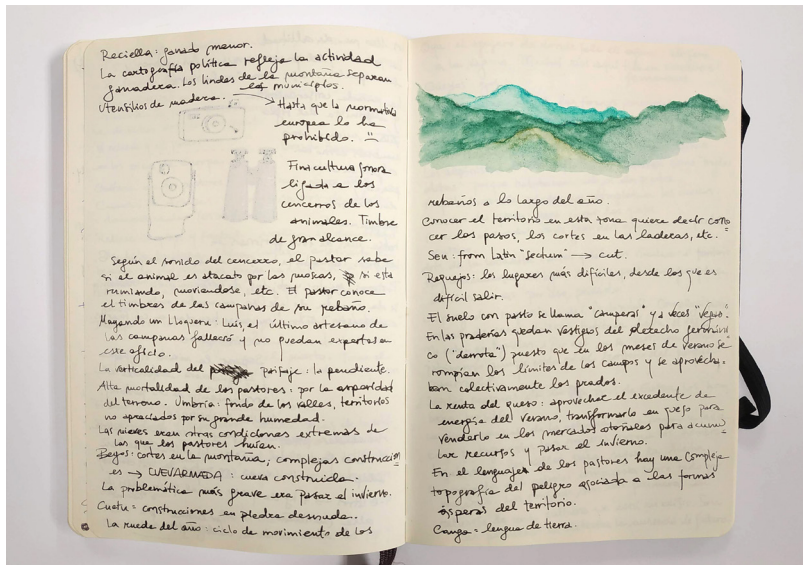 Reciella: ganado menor.
La cartografía política refleja la actividad
ganadera. Los lindes de la montaña separan
los municipios.
Utensilios de madera. → Hasta que la normativa
europea lo ha
prohibido.
Fini cultura sonora
ligada a los
cencerros de los
animales. Timbre
de gran alcance.
Según el sonido del cencerro, el pastor sabe
si el animal es atacado por las moscas, si está
rumiando, moviendose, etc. El pastor conoce
el timbres de las campanas de su rebaño.
Mayando un Lloqueru: Luis, el último artesano de
las campanas falleció y no quedan expertos en
este oficio.
La verticalidad del paisaje: la pendiente.
Alta mortalidad de los pastores: por la asparidad
del terreno. Umbría: fondo de los valles, territorios
no apreciados por su grande humedad.
Las nieves eran otras condiciones extremas de
las que los pastores huían.
Beyos: cortes en la montaña, complejas construccion
es → CUEVARMADA: cueva construida.
La problemática más grave era pasar el invierno.
= construcciones en piedra desnuda.
La rueda del año: ciclo de movimiento de los
rebaños a lo largo del año.
Conocer el territorio en esta zona quiere decir cono=
cer los pasos, los cortes en las laderas, etc.
Seu: from Latin "sectum" → cut.
Requejos: los lugares más difíciles, desde los que es
difícil salir.
El suelo con pasto se llama "camperas" y a veces "vegas".
En las praderías quedan vestigios del
co ("derrota") puesto que en los meses de verano se
rompían los límites de los campos y se aprovecha=
ban colectivamente los prados.
La renta del queso: aprovechar el excedente de
energía del verano, transformarlo en queso para
venderlo en los mercados otoñales para acumu=
lar recursos y pasar el invierno.
En el lenguajes de los pastores hay una compleja
topografía del peligro asociada a las formas
ásperas del territorio.
Canga = lengua de tierra.